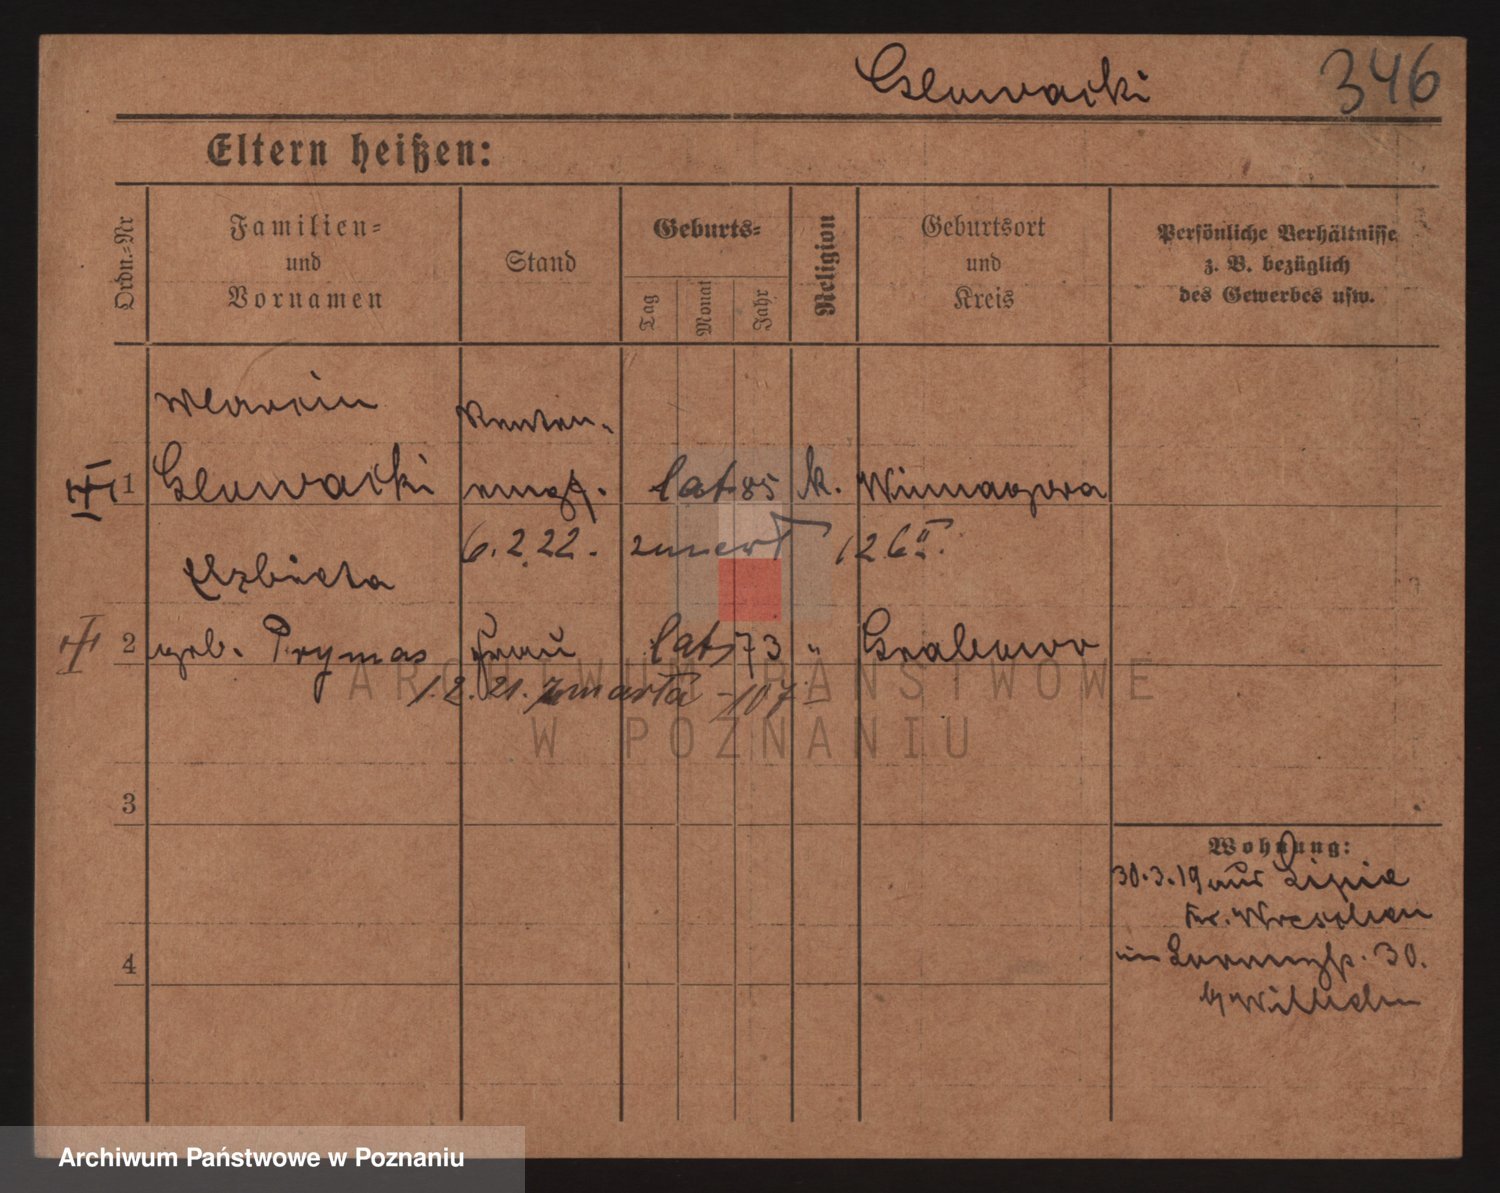 Glowacki 346
Eltern heißen:
Ordn.-Nr
Familien-
und
Vornamen
Stand
Geburts-
Tag
Monat
Jahr
Religion
Geburtsort
und
Kreis
Persönliche Verhältnisse
z. B. bezüglich
des Gewerbes usw.
Marcin Renten-
1 Glowacki empf. lat 85 k. Winnagora
6.2.22. zmarł 126 II.
Elzbieta
2 geb. Prymas Frau lat 73 " Grabowo
1.2.21. zmarła -107
3
Wohnung:
30.3.19 aus Lipie
Kr. Wreschen
4
in 30.
b/Wilhelm
ARCHIWUM PAŃSTWOWE
W POZNANIU
Archiwum Państwowe w Poznaniu